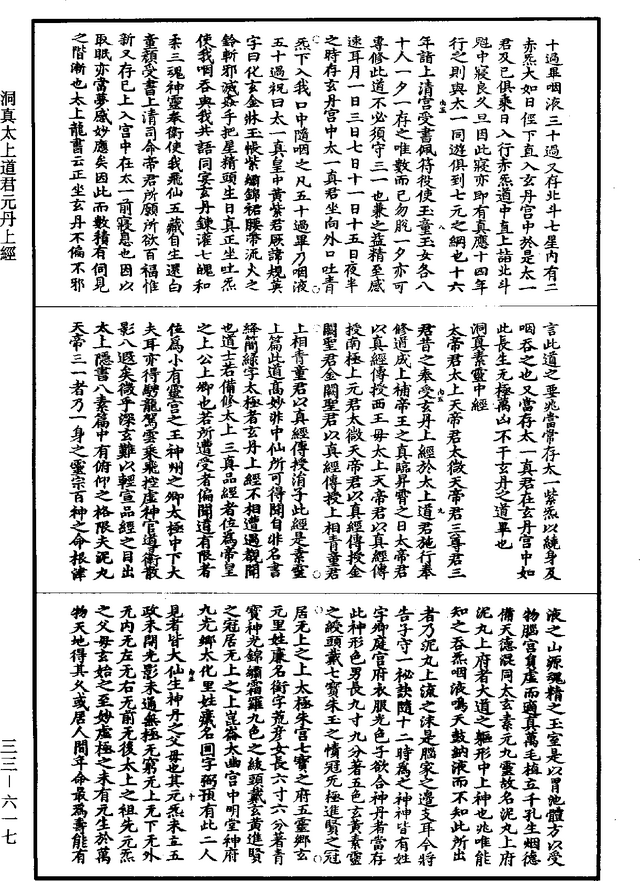 十過畢咽液三十過又存北斗七星內有二
赤炁大如日徑下直入玄丹宮中於是太一
君及己俱乘日入行赤炁道中直上詣北斗
魁中寢良久且因此寢亦即有真應十四年
行之則與太一同遊俱到七元之綱也十六
年詣上清宮受書佩符役使玉童玉女各八
十人一夕一存之唯數而已勿脫一夕亦可
專修此道不必須守三一也兼之益精至感
速耳月一日三日七日十一日十五日夜半
之時存玄丹宮中太一真君坐向外口吐青
炁下入我口中隨咽之凡五十過畢乃咽液
五十過祝曰太一真皇中黃紫君厥諱規英
字曰化玄金牀玉帳紫繡錦裙腰帶流火之
鈴斬邪滅姦手把星精頭生日真正坐吐炁
使我咽吞與我共語同宴玄丹鍊灌七魄和
柔三魂神靈奉衛使我飛仙五藏自生還白
童顏受書上清司命帝君所願所欲百福惟
新又存已上入宮中在太一前寢息也因以
取眠亦當夢感妙應矣因此而數積有伺見
之階漸也太上龍書云正坐玄丹不偏不邪
言此道之要兆當常存太一紫炁以鍊身及
咽吞之也又當存太一真君在玄丹宮中如
此長生無極萬凶不干玄丹之道畢也
洞真素靈中經
太帝君太上天帝君太微天帝君三尊君三
君昔之奉受玄丹上經於太上道君施行奉
修道成上補帝王之真臨昇霄之日太帝君
以真經傳授西王母太上天帝君以真經傳
授南極上元君太微天帝君以真經傳授金
闕聖君金闕聖君以真經傳授上相青童君
上相青童君以真經傳授涓子此經是素靈
上篇此道高妙非中仙所可得聞自非名書
絳簡綠字太極者玄丹上經不相遭遇覩聞
也道士若備修太上三真品經者位爲帝皇
之上公上卿也若所遭受者偏聞道有限者
位爲小有靈宮之王神州之卿太極中下大
夫耳亦得騁龍駕雲乘飛控虛神官導衛散
影八遐矣微乎深玄難以輕宣品經之目出
太上隱書八素篇中有俯仰之格限夫泥丸
天帝三一者乃一身之靈宗百神之命根津
液之山源魂精之玉室是以胃池體方以受
物腦宮員虛而適真萬毛植立千孔生烟德
備天德混同太玄素元九靈故名泥丸上府
泥丸上府者大道之軀形中上神也兆唯能
知之吞炁咽液鳴天鼓納液而不知此所出
者乃泥丸上流之沫是腦家之邊支耳今將
告子守一秘訣隨十二時爲之神神皆有姓
字鄉庭宮府衣服光色子欲合神丹者當存
此神形色男長九寸九分著五色玄黃素靈
之綬頭戴七寶朱玉之幘冠旡極進賢之冠
居无上之上太極朱宮七寶之府五靈鄉玄
元里姓廉名銜字荒彥女長六寸六分著青
寶神光錦繡霜羅九色之綬頭戴玄黃進賢
之冠居无上之上崑崙太曲宮中明堂神府
九光鄉太化里姓藏名回字弼預有此二人
見者皆大仙生神丹之父母也其元炁未立五
政未開光影未通無極无窮无上无下无外
无內无左无右无前无後太上之祖先元炁
之父母玄始之至妙虛極之未有元生於萬
物天地得其久或居人間年命最爲壽能有
洞真太上道君元丹上經
三三—六一七